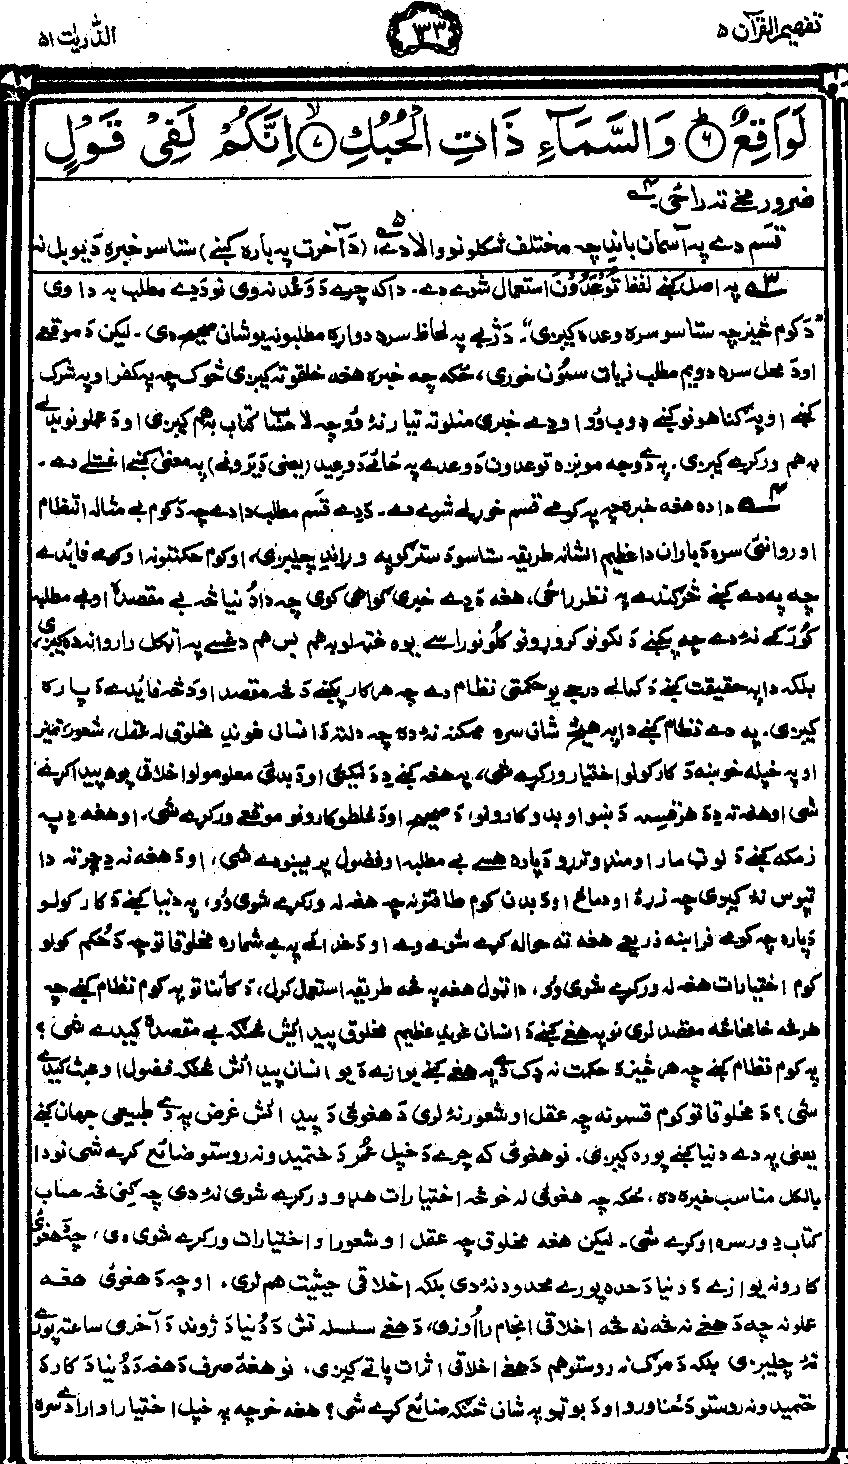 تفهیم القرآن ۵
۱۳۳
الذّٰریٰت ۵۱
لَوَاقِعٌ ۶ وَالسَّمَآءِ ذَاتِ الْحُبُكِ ۷ اِنَّكُمْ لَفِیْ قَوْلٍ
ضرور مخے ته راځی۔
قسم دے په آسمان باندِ چه مختلف شکلونو والا دے، (دَ آخرت په باره کښے) ستاسو خبره دَ یو بل نه
په اصل کښے لفظ تُوْعَدُوْنَ استعمال شوے دے۔ دا که چرے دَ وَعْد نه وی نو دَ دے مطلب به دا وی
"دَ کوم څیز چه ستاسو سره وعده کیږی"۔ دَ ژبے په لحاظ سره دواړه مطلبونه یو شان صحیح دی۔ لیکن دَ موقعے
او دَ محل سره دویم مطلب زیات سمون خوری، ځکه چه خبره هغه خلقو ته کیږی څوک چه په کفر او په شرک
کښے او په ګناهونو کښے ډوب وُو او دِے خبری منلو ته تیار نۀ وُو چه لا حساب کتاب به هم کیږی او دَ عملونو بدلے
به هم ورکړے کیږی۔ په دے وجه مونږه توعدون دَ وعدے په ځائے دَ وعید (یعنی دَ یَرونے) په معنیٰ کښے اغستلے دے۔
دا ده هغه خبره چه په کومے قسم خوړلے شوے دے۔ دَ دے قسَم مطلب دا دے چه دَ کوم بے مثاله انتظام
او روانئ سره دَ باران دا عظیم الشانه طریقه ستاسو دَ سترګو په وړاندِ چلیږی، او کوم حکمتونه او کومے فائدے
چه په دے کښے څرګندے په نظر راځی، هغه دَ دے خبری ګواهی کوی چه دا دُنیا څه بے مقصده او بے مطلبه
بلکه دا په حقیقت کښے دَ کمال درجے یو حکمتی نظام دے چه هر کار پکښے دَ څه مقصد او دَ څه فائدے دَ پاره
کیږی۔ په دے نظام کښے دا په هیڅ شان سره ممکنه نۀ ده چه دلته دَ انسان غوندِ مخلوق له عقل، شعور، تمیز
او په خپله خوښه دَ کار کولو اختیار ورکړے شی، په هغه کښے دِ دَ نیکئ او دَ بدئ معلومولو اخلاقی پوهه پیدا کړے
شی او هغه ته دِ دَ هر قِسمه دَ ښو او بدو کارونو، دَ صحیح او دَ غلطو کارونو موقعے ورکړے شی، او هغه دِ په
زمکه کښے دَ لوټ مار او مندو ترړو دَ پاره هسے بے مطلبه او فضول پریښودے شی، او دَ هغه نه دِ چرته دا
تپوس نۀ کیږی چه زړۀ او دماغ او دَ بدن کوم طاقتونه چه هغه له ورکړے شوی وُو، په دنیا کښے دَ کار کولو
دَ پاره چه کومے فراخه ذریعے هغه ته حواله کړے شوے وے او دَ خدائے په بے شماره مخلوقاتو چه دَ حُکم کولو
کوم اختیارات هغه له ورکړے شوی وُو، دا ټول هغه په څه طریقه استعمال کړل، دَ کائناتو په کوم نظام کښے چه
هر څه خامخا څه مقصد لری نو په هغے کښے دَ انسان غوندِ عظیم مخلوق پیدائش څنګه بے مقصده کیدے شی؟
په کوم نظام کښے چه هر څیز دَ حکمت نه ډک دے په هغے کښے یوازے دَ یو انسان پیدائش څنګه فضول او عبث کیدے
شی؟ دَ مخلوقاتو کوم قسمونه چه عقل او شعور نۀ لری دَ هغوئ دَ پیدائش غرض په دے طبیعی جهان کښے
یعنی په دے دنیا کښے پوره کیږی۔ نو هغوئ که چرے دَ خپل عُمر دَ ختمیدو نه روستو ضائع کړے شی نو دا
بالکل مناسب خبره ده، ځکه چه هغوئ له څه اختیارات هم ورکړے شوی نۀ دی چه ګنی څه حساب
کتاب دِ ورسره اوکړے شی۔ لیکن هغه مخلوق چه عقل او شعور او اختیارات ورکړے شوی وی، چه دَ هغوئ
کارونه یوازے دَ دنیا دَ حده پورے محدود نۀ دی بلکه اخلاقی حیثیت هم لری، او چه دَ هغوئ هغه
عملونه چه دَ هغے نه څه نه څه اخلاقی انجام را اوزی، دَ هغے سلسله تش دَ دُنیا دَ ژوند دَ آخری ساعته پورے
نۀ چلیږی بلکه دَ مرګ نه روستو هم دَ هغے اخلاقی اثرات پاتے کیږی، نو هغه صرف دَ هغه دَ دُنیا دَ کار دَ
ختمیدو نه روستو دَ ځناورو او دَ بوټو په شان څنګه ضائع کړے شی؟ هغه خو چه په خپل اختیار او ارادے سره